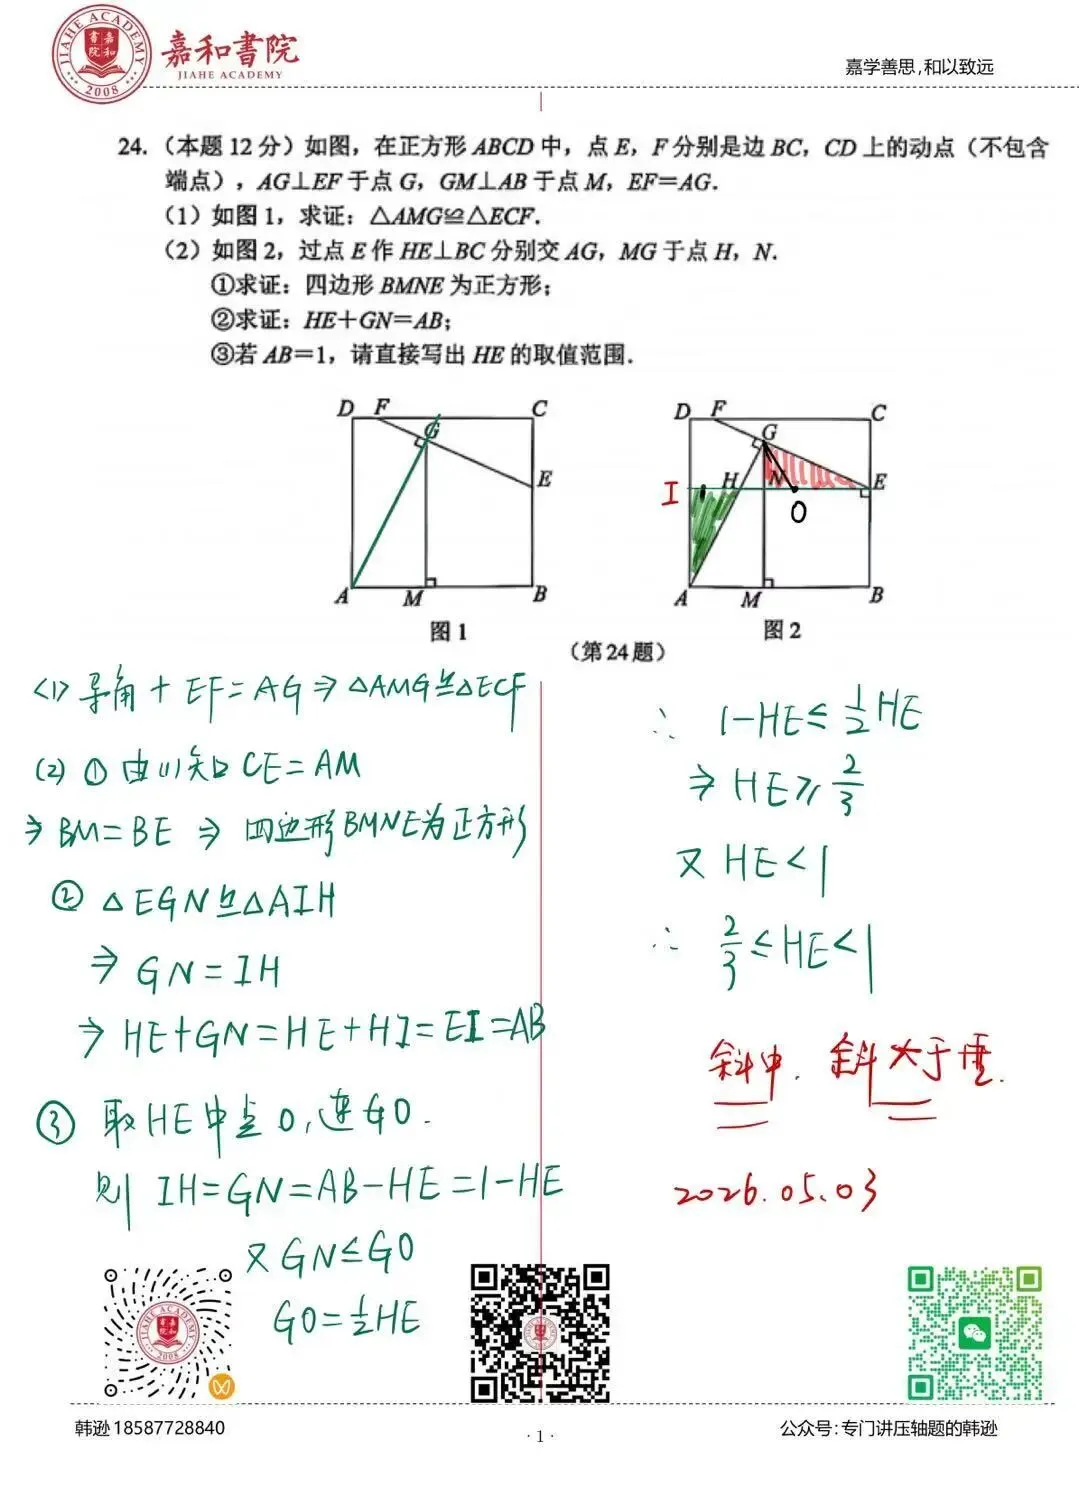 嘉和書院
JIAHE ACADEMY
JIAHE ACADEMY
書院 嘉和
2008
嘉学善思,和以致远
24.(本题12分)如图,在正方形ABCD中,点E,F分别是边BC,CD上的动点(不包含
端点),AG⊥EF于点G,GM⊥AB于点M,EF=AG.
(1)如图1,求证:△AMG≌△ECF.
(2)如图2,过点E作HE⊥BC分别交AG,MG于点H,N.
①求证:四边形BMNE为正方形;
②求证:HE+GN=AB;
③若AB=1,请直接写出HE的取值范围.
D F C
G
E
A M B
图1
D F C
G
I H N E
O
A M B
图2
(第24题)
(1) 导角+EF=AG⇒△AMG≌△ECF
(2) ① 由(1)知CE=AM
⇒BM=BE⇒四边形BMNE为正方形
② △EGN≌△AIH
⇒GN=IH
⇒HE+GN=HE+HI=EI=AB
③ 取HE中点O,连GO.
则IH=GN=AB-HE=1-HE
又GN≤GO
GO=½HE
∴ 1-HE≤½HE
⇒HE≥⅔
又HE<1
∴ ⅔≤HE<1
斜中.斜大于垂.
2026.05.03
JIAHE ACADEMY
2008
韩逊18587728840
·1·
公众号:专门讲压轴题的韩逊